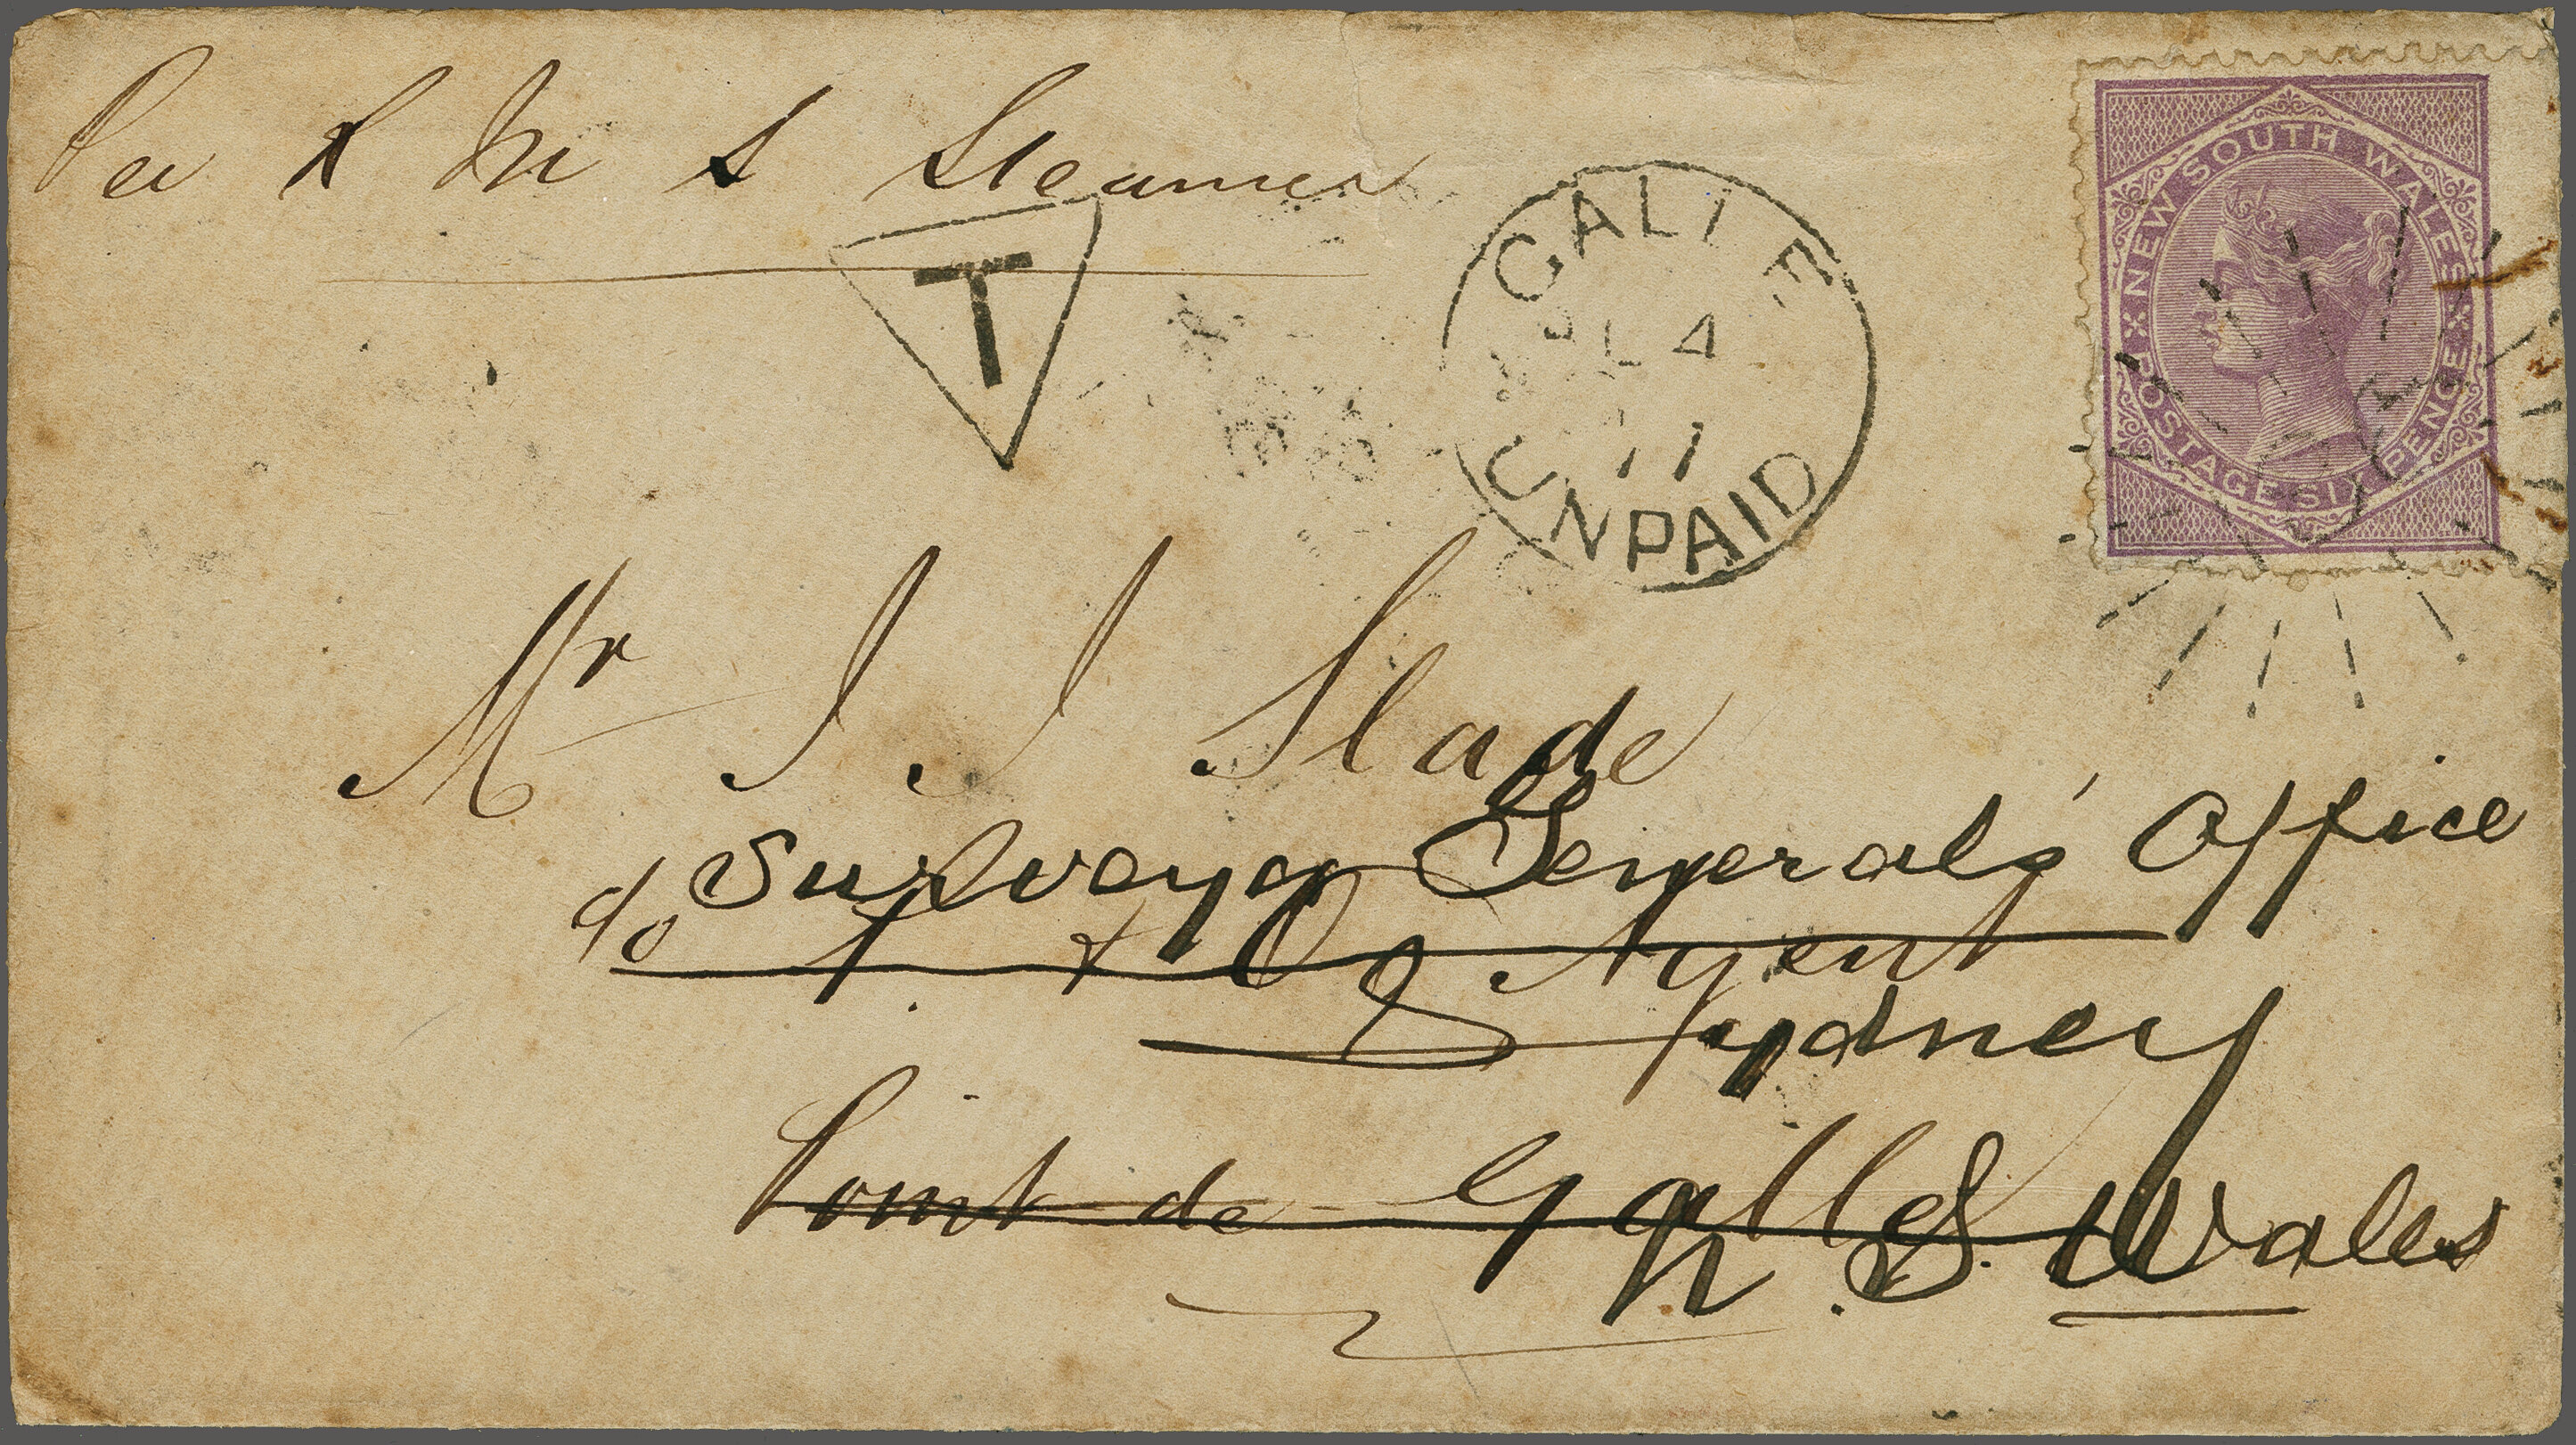 Per R M S Steamer
NEW SOUTH WALES
POSTAGE SIX PENCE
T
GALLE
JL 4
77
UNPAID
Mr J J Slade
Surveyor Generals' Office
c/o P. & O Agent
Sydney
Point de Galle
N. S. Wales